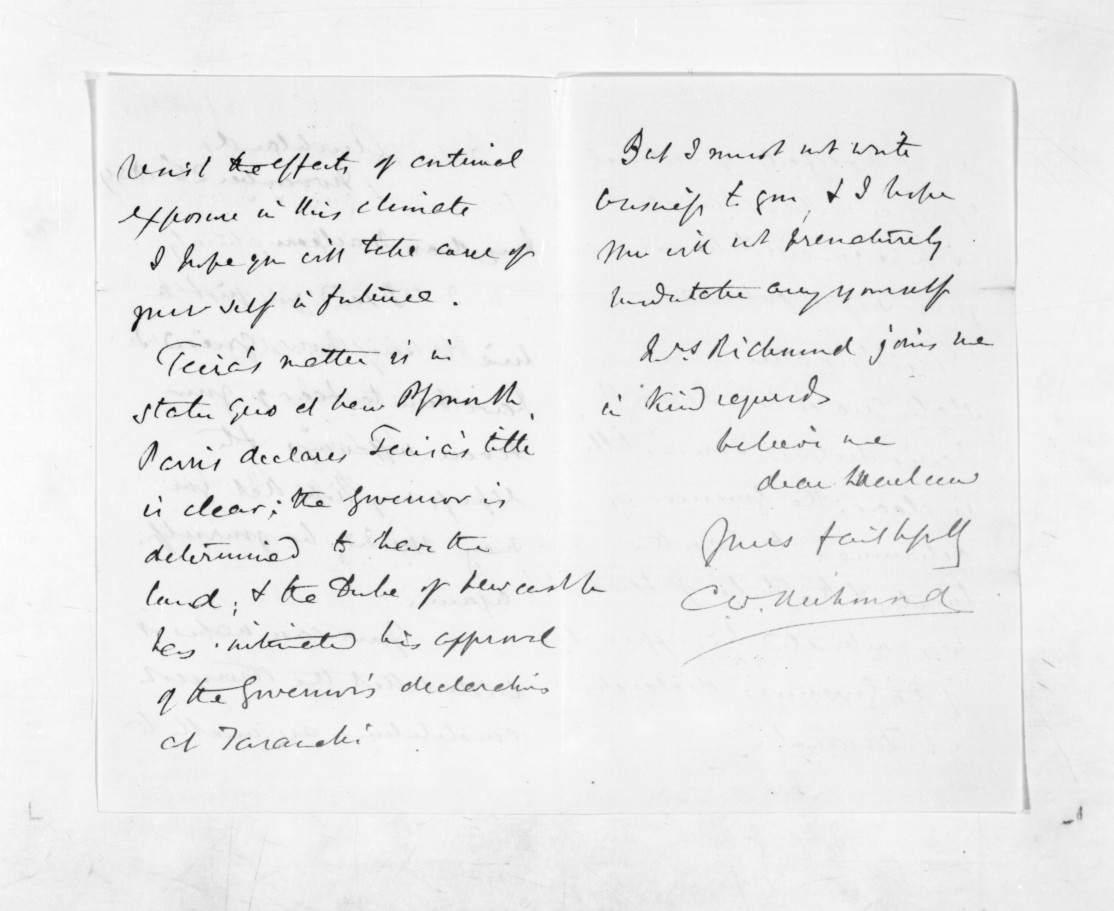 resist the effects of continual
exposure in this climate
I hope you will take care of
yourself in future.
Teira's matter is in
statu quo at New Plymouth,
Parris declares Teira's title
is clear; the Governor is
determined to have the
land, & the Duke of Newcastle
has intimated his approval
of the Governor's declarations
at Taranaki
But I must not write
business to you, & I hope
you will not prematurely
undertake any yourself
Mrs Richmond joins me
in kind regards
believe me
dear McLean
Yours faithfully
CW. Richmond